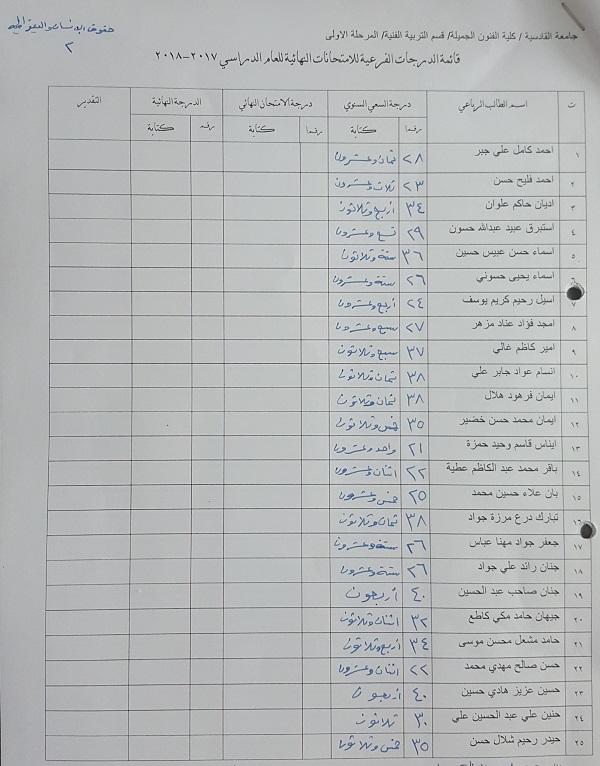 حقوق الانسان والديمقراطية
٢
جامعة القادسية / كلية الفنون الجميلة/ قسم التربية الفنية/ المرحلة الاولى
قائمة الدرجات الفرعية للامتحانات النهائية للعام الدراسي ٢٠١٧-٢٠١٨
ت اسم الطالب الرباعي درجة السعي السنوي درجة الامتحان النهائي الدرجة النهائية التقدير
رقما كتابة رقما كتابة رقما كتابة
١ احمد كامل علي جبر ٢٨ ثمان وعشرون
٢ احمد فليح حسن ٢٣ ثلاث وعشرون
٣ اديان حاكم علوان ٣٤ أربع وثلاثون
٤ استبرق عبيد عبدالله حسون ٢٩ تسع وعشرون
٥ اسماء حسن عبيس حسين ٣٦ ستة وثلاثون
٦ اسماء يحيى حسوني ٢٦ ستة وعشرون
٧ اسيل رحيم كريم يوسف ٢٤ أربع وعشرون
٨ امجد فؤاد عناد مزهر ٢٧ سبع وعشرون
٩ امير كاظم غالي ٣٧ سبع وثلاثون
١٠ انسام عواد جابر علي ٣٨ ثمان وثلاثون
١١ ايمان فرهود هلال ٣٨ ثمان وثلاثون
١٢ ايمان محمد حسن خضير ٣٥ خمس وثلاثون
١٣ ايناس قاسم وحيد حمزة ٢١ واحد وعشرون
١٤ باقر محمد عبد الكاظم عطية ٢٢ اثنان وعشرون
١٥ بان علاء حسين محمد ٢٥ خمس وعشرون
١٦ تبارك درع مرزة جواد ٣٨ ثمان وثلاثون
١٧ جعفر جواد مهنا عباس ٢٦ ستة وعشرون
١٨ جنان رائد علي جواد ٢٦ ستة وعشرون
١٩ جنان صاحب عبد الحسين ٤٠ أربعون
٢٠ جيهان حامد مكي كاطع ٣٢ اثنان وثلاثون
٢١ حامد مشعل محسن موسى ٣٤ أربع وثلاثون
٢٢ حسن صالح مهدي محمد ٢٢ اثنان وعشرون
٢٣ حسين عزيز هادي حسين ٤٠ أربعون
٢٤ حنين علي عبد الحسين علي ٣٠ ثلاثون
٢٥ حيدر رحيم شلال حسن ٣٥ خمس وثلاثون